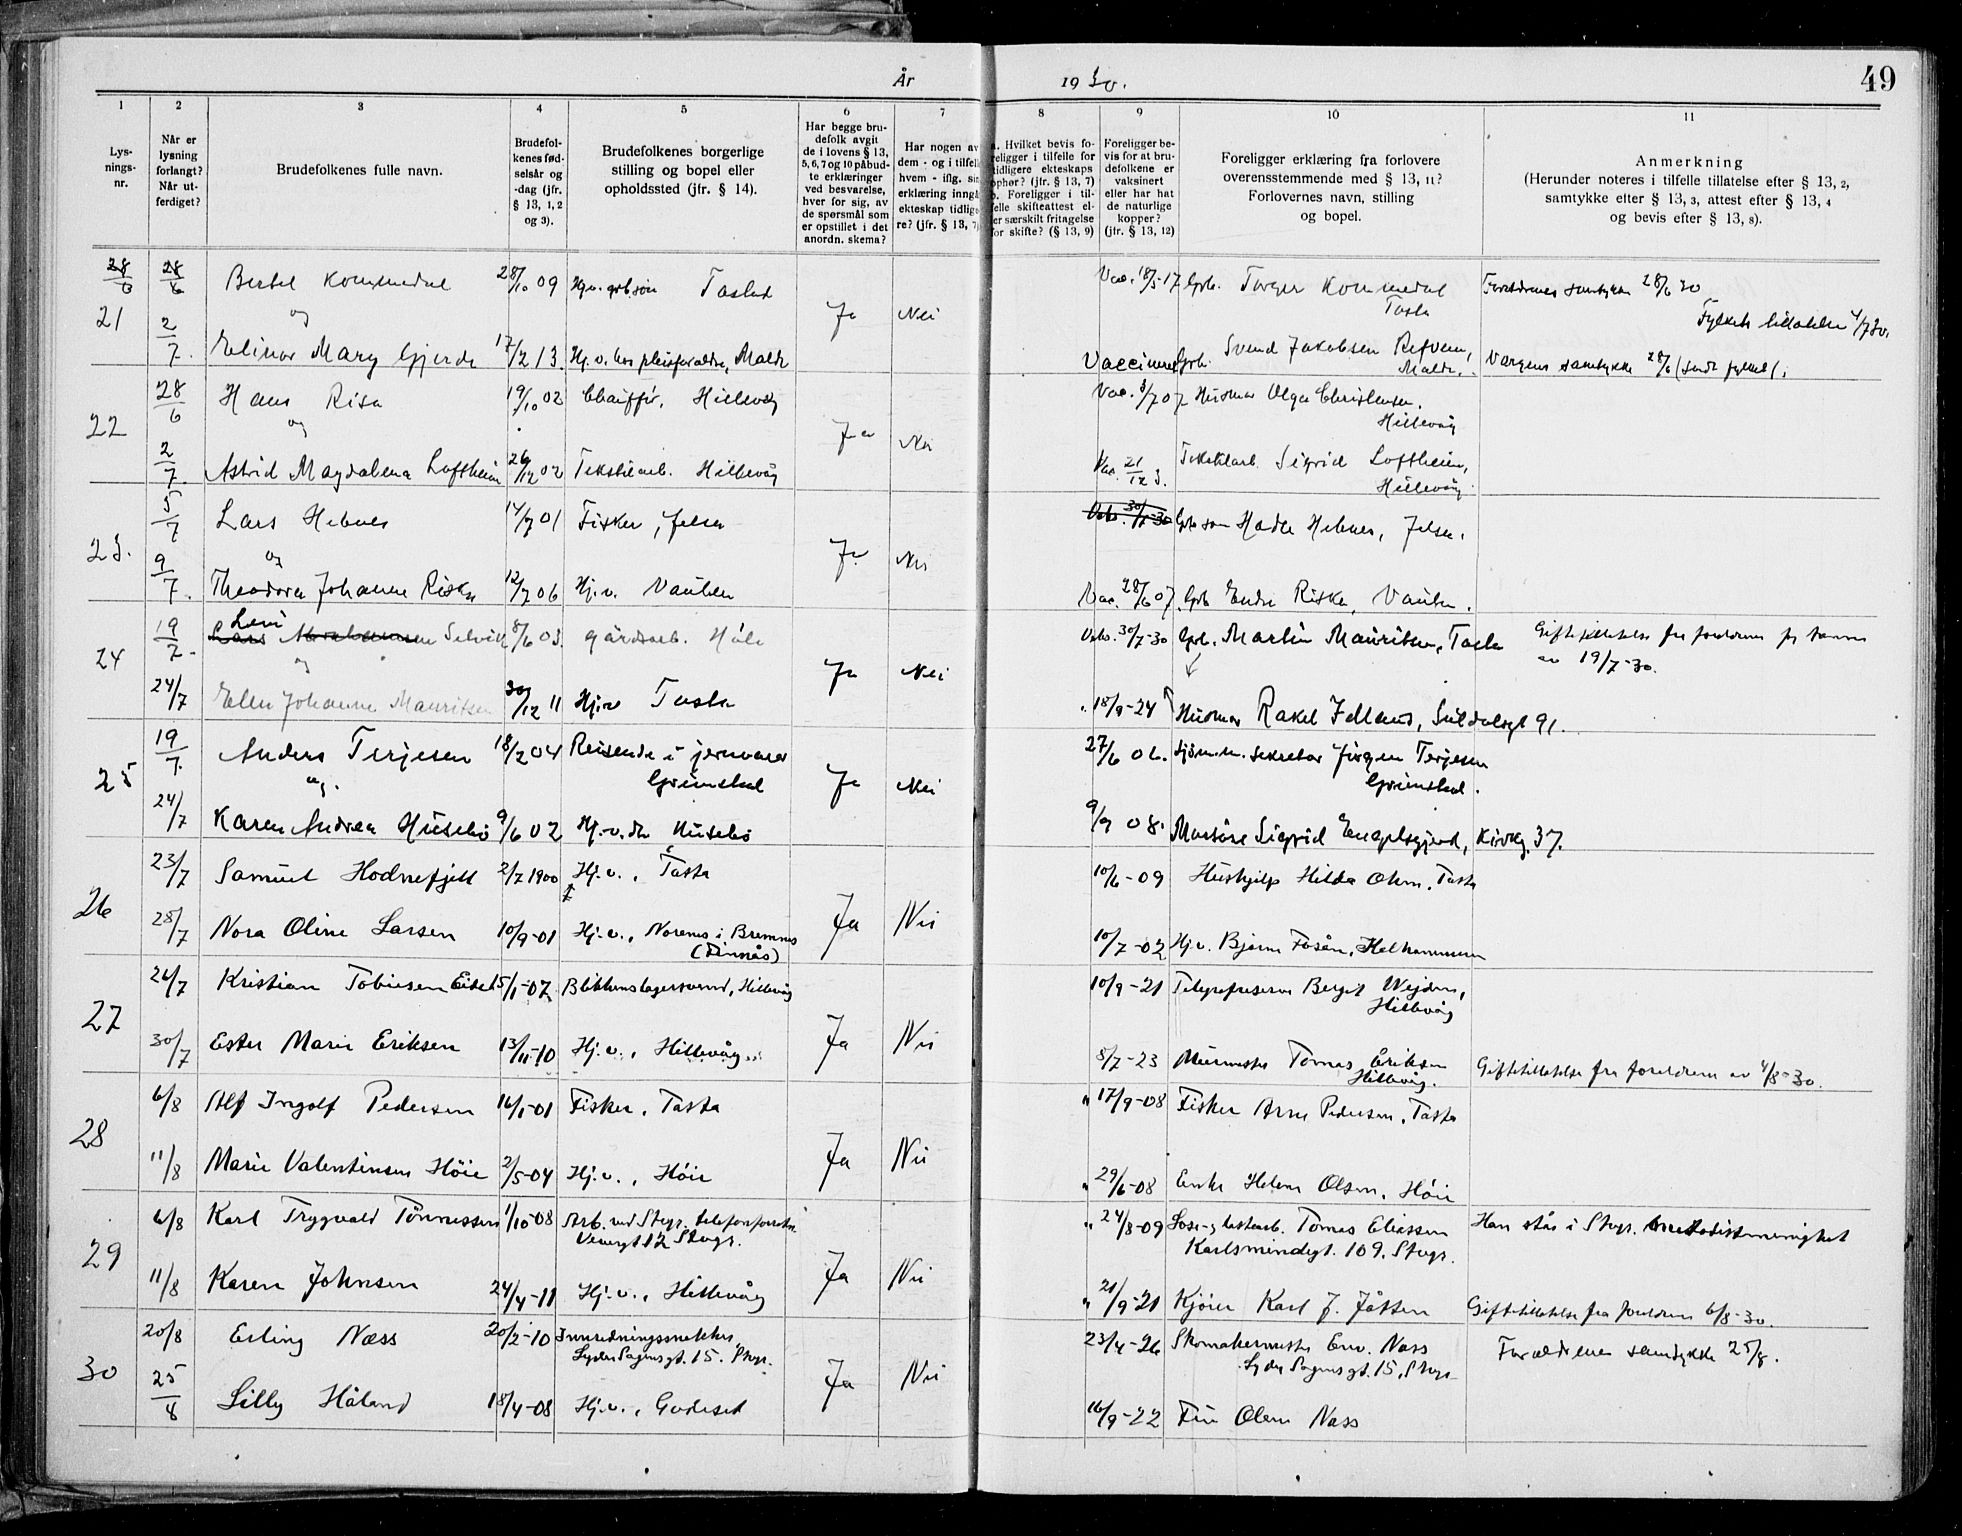 År 19 30.
49
1 2 3 4 5 6 7 8 9 10 11
Lys-
nings-
nr.
Når er
lysning
forlangt?
Når ut-
ferdiget?
Brudefolkenes fulle navn.
Brudefol-
kenes fød-
selsår og
-dag (jfr.
§ 13, 1, 2
og 3).
Brudefolkenes borgerlige
stilling og bopel eller
opholdssted (jfr. § 14).
Har begge bru-
defolk avgit
de i lovens § 13,
5, 6, 7 og 10 påbud-
te erklæringer
ved besvarelse,
hver for sig, av
de spørsmål som
er opstillet i det
anordn. skema?
Har nogen av
dem - og i tilfelle
hvem - iflg. sin
erklæring inngå
ekteskap tidlige
re? (jfr. § 13, 7)
a. Hvilket bevis fo-
religger i tilfelle for
tidligere ekteskaps
ophør? (jfr. § 13, 7)
b. Foreligger i til-
felle skifteattest el-
ler særskilt fritagelse
for skifte? (§ 13, 9)
Foreligger be-
vis for at bru-
defolkene er
vaksinert
eller har hat
de naturlige
kopper?
(jfr. § 13, 12)
Foreligger erklæring fra forlovere
overensstemmende med § 13, 11?
Forlovernes navn, stilling
og bopel.
Anmerkning
(Herunder noteres i tilfelle tillatelse efter § 13, 2,
samtykke efter § 13, 3, attest efter § 13, 4
og bevis efter § 13, 8).
28/6 28/6 Bertel Kommedal 28/10 09 Hj.v. grbsøn Tastad Vac. 18/5-17 Grb. Torger Kommedal Forældrenes samtykke 28/6 30
og Tasta
21 Ja Nei Fylkets tillatelse 4/7 30.
2/7. Elinor Mary Gjerde 17/2 13. Hj.v. hos pleieforældre, Malde Vaccineret Grb. Svend Jakobsen Refvem, Værgens samtykke 28/6 (sendt fylket).
Malde.
28/6 Hans Risa 19/10 02 Chauffør, Hillevåg Vac. 3/7 07 Husmor Olga Christensen.
og Hillevåg
22 Ja Nei
2/7. Astrid Magdalena Loftheim 26/12 02 Tekstilarb. Hillevåg Vac. 21/12 3. Tekstilarb. Sigrid Loftheim,
Hillevåg.
5/7 Lars Hebnes 14/7 01 Fisker, Jelsa Vaks. 30/7-30 Grb søn Hadle Hebnes, Jelsa.
og
23. Ja. Nei
9/7. Theodora Johanne Riska 12/7 06 Hj.v. Vaulen Vac. 28/6 07. Grb Endre Riska, Vaulen.
Levi
19/7. Lars Abrahamsen Selvik 8/6 03. gårdsarb. Håle Vaks. 30/7-30 Grb. Martin Mauritsen, Tasta Giftetillatelse fra foreldrene for henne
og av 19/7-30.
24 Ja Nei
24/7 Ellen Johanne Mauritsen 30/12 11 Hj.v Tasta " 18/9-24 Husmor Rakel Tellans, Suldalsgt 91.
19/7. Anders Terjesen 18/2 04 Reisende i jernvarer 27/6 06. Sjøm.m. sekretær Jørgen Terjesen
og. Grimstad Grimstad.
25 Ja Nei
24/7 Karen Andrea Husebø 9/6 02 Hj.v. Husebø 9/9 08. Massøse Sigrid Engelsgjerd, Kirkeg. 37.
23/7 Samuel Hodnefjell 2/7 1900 Hj.v., Tasta 10/6-09 Hushjelp Hilda Ohm. Tasta
26 Ja Nei
28/7 Nora Oline Larsen 10/9-01 Hj.v., Norenes i Bremnes 10/7-02 Hj.v. Bjarne Fosån, Kolhammeren
(Finnås)
26/7 Kristian Tobiesen Eide 15/1-07. Blikkenslagersvend, Hillevåg 10/9-21 Telegrafreserve Bergit Weydam,
Hillevåg
27 Ja Nei
30/7 Ester Marie Eriksen 13/11-10 Hj.v., Hillevåg 8/7-23 Murmester Tomas Eriksen Giftetillatelse fra foreldrene av 4/8-30.
Hillevåg.
6/8 Alf Ingolf Pedersen 16/1-01 Fisker, Tasta " 17/9-08 Fisker Arne Pedersen, Tasta
28 Ja Nei
11/8 Marie Valentinsen Høie 2/5-04 Hj.v., Høie " 29/6-08 Enke Helene Olsen, Høie
6/8 Karl Trygvald Tønnessen 1/10-08 Arb. ved Stvgr. telefonforretn. " 24/8-09 Lose- og lastearb. Tomas Eliassen Han står i Stvgr. metodistmenighet
12 Stvgr. Karlsmindegt. 109. Stvgr.
29 Ja Nei
11/8 Karen Johnsen 24/4-11 Hj.v., Hillevåg " 21/9-21 Kjører Karl J. Jåtten Giftetillatelse fra foreldrene 6/8-30.
20/8 Erling Næss 20/2-10 Innredningssnekker 23/4-26 Skomakermester Env. Næss Forældrenes samtykke 25/8.
Lyder Sagensgt. 15. Stvgr. Lyder Sagensgt. 15, Stvgr
30 Ja Nei
25/8 Lilly Håland 18/4-08 Hj.v., Godeset 16/9-22 Olem Næss